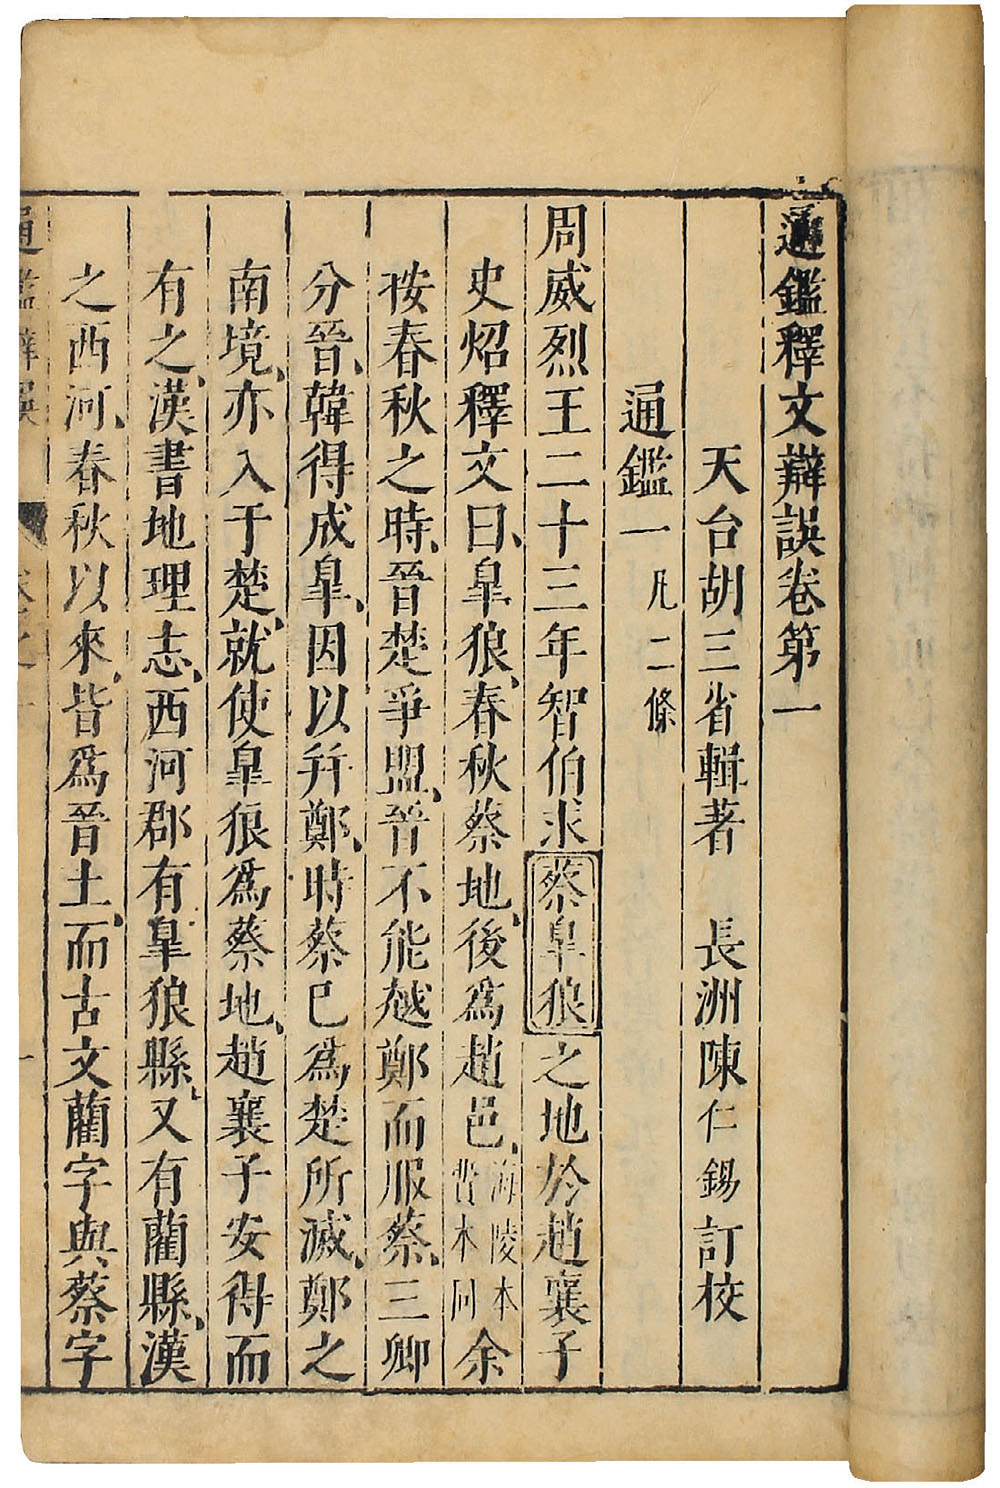 通鑑釋文辯誤卷第一
天台胡三省輯著　長洲陳仁錫訂校
通鑑一　凡二條
周威烈王二十三年智伯求蔡皐狼之地於趙襄子
史炤釋文曰、皐狼、春秋蔡地、後爲趙邑、海陵本費本同余
按春秋之時、晉楚爭盟、晉不能越鄭而服蔡、三卿
分晉、韓得成皐、因以幷鄭、時蔡已爲楚所滅、鄭之
南境、亦入于楚、就使皐狼爲蔡地、趙襄子安得而
有之、漢書地理志、西河郡有皐狼縣、又有藺縣、漢
之西河、春秋以來、皆爲晉土、而古文藺字與蔡字